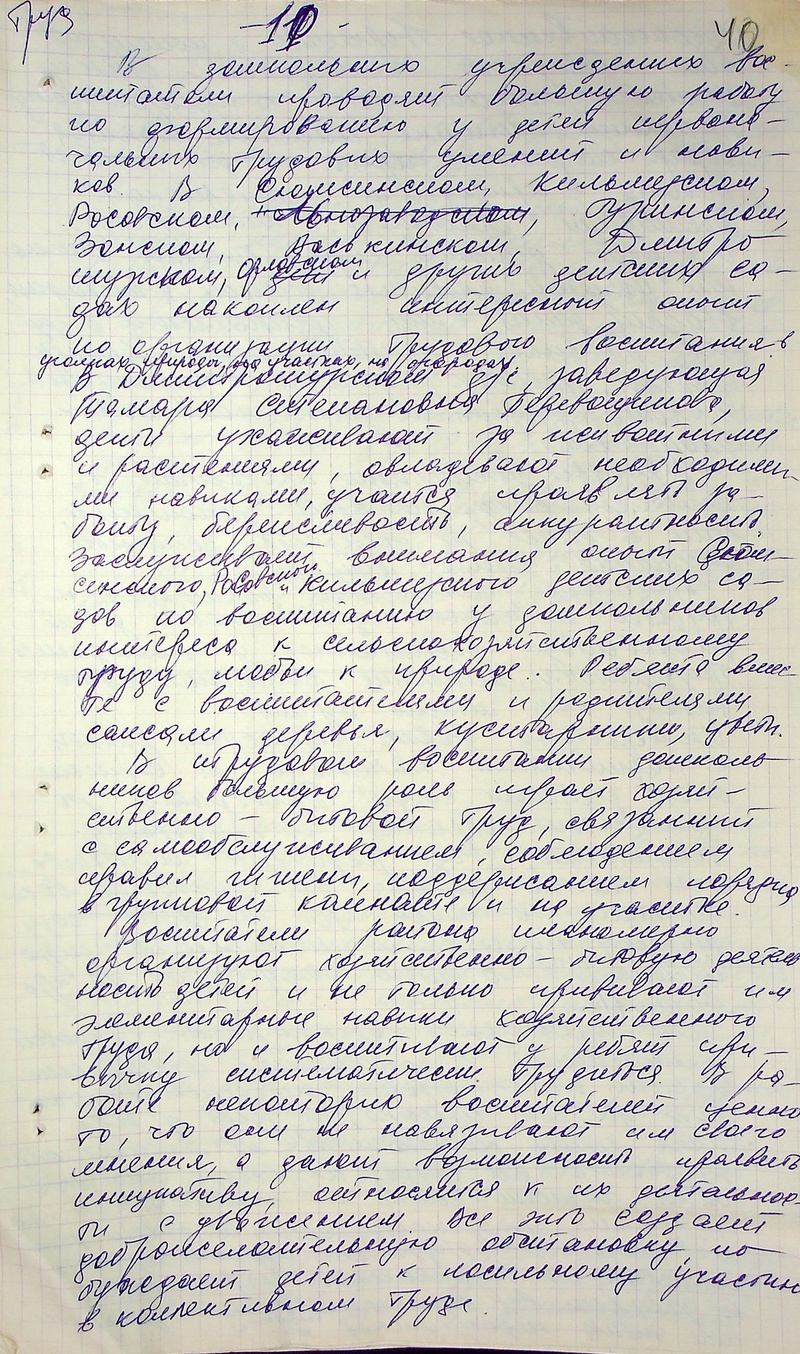 Труд
-10-
40
В дошкольных учреждениях вос-
питатели проводят большую работу
по формированию у детей первона-
чальных трудовых умений и навы-
ков. В Сюмсинском, Кильмезском,
Росовском, Гуринском,
Зонском, Васькинском, Дмитро
шурском, Орловском и других детских са-
дах накоплен интересный опыт
по организации трудового воспитания в
уголках природы, на участках, на огородах.
В Дмитрошурском д/с, заведующая
Тамара Степановна Перевощикова,
дети ухаживают за животными
и растениями, овладевают необходимы-
ми навыками, учатся проявлять за-
боту, бережливость, аккуратность.
Заслуживает внимания опыт Сюм-
синского, Росовского и Кильмезского детских са-
дов по воспитанию у дошкольников
интереса к сельскохозяйственному
труду, любви к природе. Ребята вмес-
те с воспитателями и родителями
сажали деревья, кустарники, цветы.
В трудовом воспитании дошколь
ников большую роль играет хозяй-
ственно-бытовой труд, связанный
с самообслуживанием, соблюдением
правил гигиены, поддержанием порядка
в групповой комнате и на участке.
Воспитатели района планомерно
организуют хозяйственно-бытовую деятель
ность детей и не только прививают им
элементарные навыки хозяйственного
труда, но и воспитывают у ребят при-
вычку систематически трудиться. В ра-
боте некоторых воспитателей ценно
то, что они не навязывают им своего
мнения, а дают возможность проявить
инициативу, относятся к их деятельнос-
ти с уважением. Все это создает
доброжелательную обстановку, по
буждает детей к посильному участию
в коллективном труде.